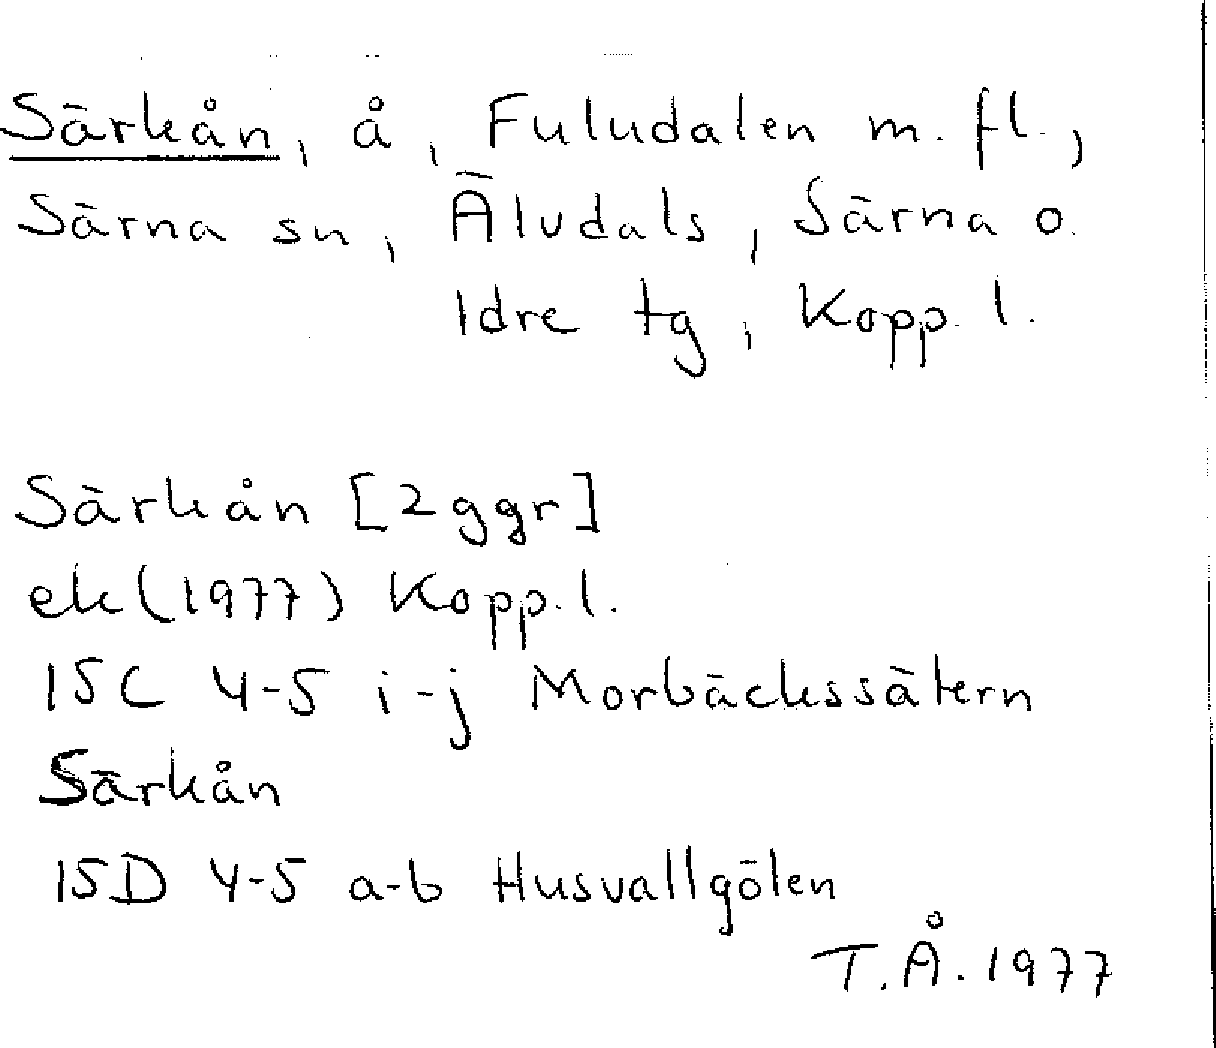 Särkån, å, Fuludalen m. fl.,
Särna sn, Äludals, Särna o.
Idre tg, Kopp. l.
Särkån [2 ggr]
ek (1977) Kopp. l.
15C 4-5 i-j Morbäckssätern
Särkån
15D 4-5 a-b Husvallgölen
T.Å. 1977